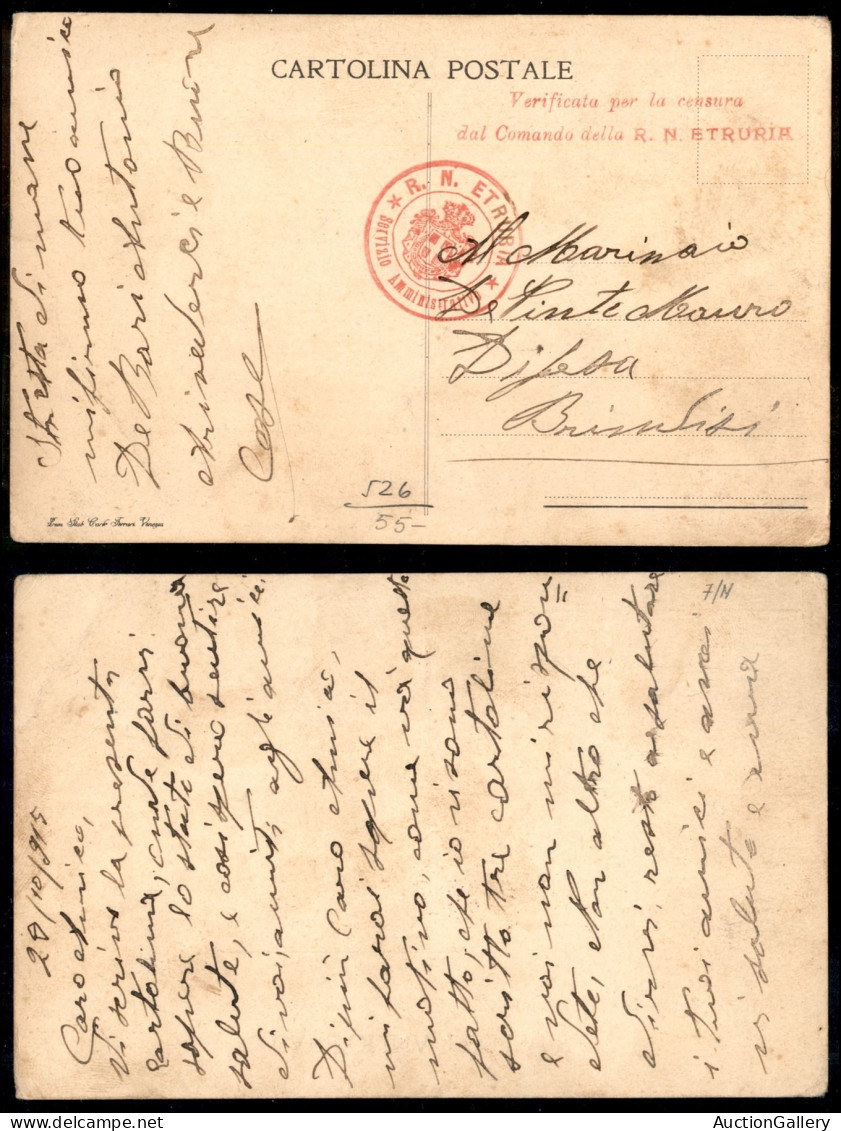 CARTOLINA POSTALE
Verificata per la censura
dal Comando della R. N. ETRURIA
★ R. N. ETRURIA ★
Servizio Amministrativo
Al Marinaio
De Pinte Mauro
Difesa
Brindisi
Stretta di mano
mi firmo tuo amico
De Bari Antonio
Arivederci e Buone
Cose
526
55-
7/N
28/10/915
Caro Amico,
Vi scrivo la presente
cartolina,
sapere lo stato di buona
salute, e così spero sentire
di voi, amati agli amici.
Di più Caro Amico,
mi farai sapere il
motivo, come và questo
fatto, che io vi sono
scritto tre cartoline
e voi non mi rispon=
dete, Non altro che
dirvi, resto a salutare
i tuoi amici e a voi
vi saluto e
AuctionGallery